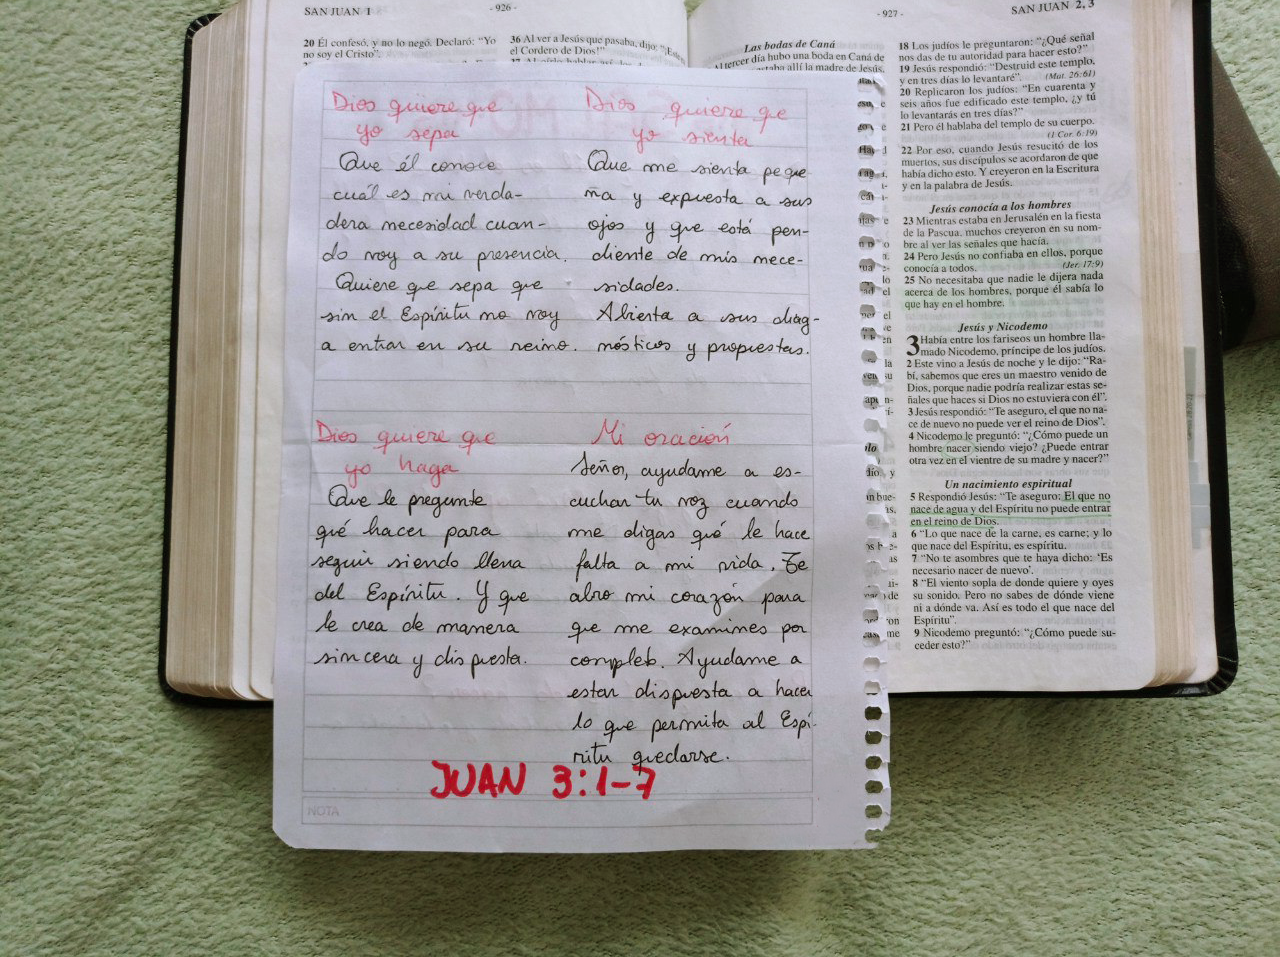 SAN JUAN 1
- 926 -
20 Él confesó, y no lo negó. Declaró: “Yo
no soy el Cristo”.
36 Al ver a Jesús que pasaba, dijo:
el Cordero de Dios!”
- 927 -
SAN JUAN 2, 3
Las bodas de Caná
tercer día hubo una boda en Caná de
allí la madre de Jesús.
Dios quiere que
yo sepa
Que él conoce
cuál es mi verda-
dera necesidad cuan-
do voy a su presencia.
Quiere que sepa que
sin el Espíritu no voy
a entrar en su reino.
Dios quiere que
yo sienta
Que me sienta peque
ña y expuesta a sus
ojos y que está pen-
diente de mis nece-
sidades.
Abierta a sus diag-
nósticos y propuestas.
Dios quiere que
yo haga
Que le pregunte
qué hacer para
seguir siendo llena
del Espíritu. Y que
le crea de manera
sincera y dispuesta.
Mi oración
Señor, ayudame a es-
cuchar tu voz cuando
me digas qué le hace
falta a mi vida. Te
abro mi corazón para
que me examines por
completo. Ayudame a
estar dispuesta a hacer
lo que permita al Espí-
ritu quedarse.
JUAN 3:1-7
NOTA
18 Los judíos le preguntaron: “¿Qué señal
nos das de tu autoridad para hacer esto?”
19 Jesús respondió: “Destruid este templo,
y en tres días lo levantaré”. (Mat. 26:61)
20 Replicaron los judíos: “En cuarenta y
seis años fue edificado este templo, ¿y tú
lo levantarás en tres días?”
21 Pero él hablaba del templo de su cuerpo.
(1 Cor. 6:19)
22 Por eso, cuando Jesús resucitó de los
muertos, sus discípulos se acordaron de que
había dicho esto. Y creyeron en la Escritura
y en la palabra de Jesús.
Jesús conocía a los hombres
23 Mientras estaba en Jerusalén en la fiesta
de la Pascua, muchos creyeron en su nom-
bre al ver las señales que hacía.
24 Pero Jesús no confiaba en ellos, porque
conocía a todos. (Jer. 17:9)
25 No necesitaba que nadie le dijera nada
acerca de los hombres, porque él sabía lo
que hay en el hombre.
Jesús y Nicodemo
3 Había entre los fariseos un hombre lla-
mado Nicodemo, príncipe de los judíos.
2 Este vino a Jesús de noche y le dijo: “Ra-
bí, sabemos que eres un maestro venido de
Dios, porque nadie podría realizar estas se-
ñales que haces si Dios no estuviera con él”.
3 Jesús respondió: “Te aseguro, el que no na-
ce de nuevo no puede ver el reino de Dios”.
4 Nicodemo le preguntó: “¿Cómo puede un
hombre nacer siendo viejo? ¿Puede entrar
otra vez en el vientre de su madre y nacer?”
Un nacimiento espiritual
5 Respondió Jesús: “Te aseguro: El que no
nace de agua y del Espíritu no puede entrar
en el reino de Dios.
6 “Lo que nace de la carne, es carne; y lo
que nace del Espíritu, es espíritu.
7 “No te asombres que te haya dicho: ‘Es
necesario nacer de nuevo’.
8 “El viento sopla de donde quiere y oyes
su sonido. Pero no sabes de dónde viene
ni a dónde va. Así es todo el que nace del
Espíritu”.
9 Nicodemo preguntó: “¿Cómo puede su-
ceder esto?”